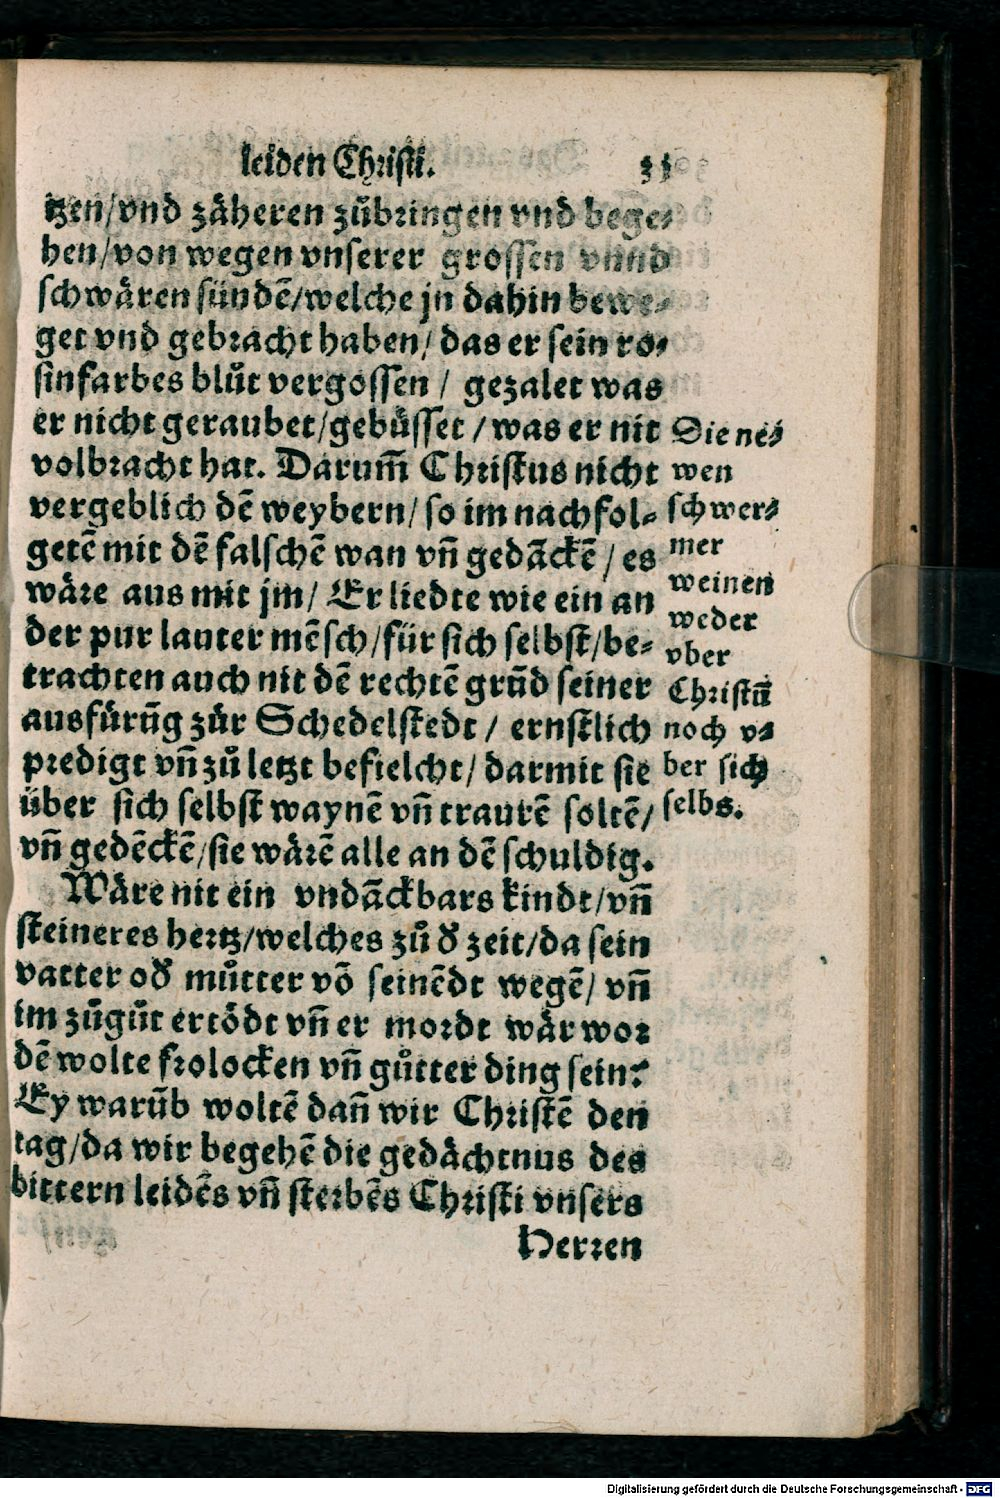 leiden Christi. 31
tzen/vnd zäheren zůbringen vnd bege-
hen/von wegen vnserer grossen vnnd
schwären sündē/welche jn dahin bewe-
get vnd gebracht haben/ das er sein ro-
sinfarbes blůt vergossen / gezalet was
er nicht geraubet/gebüsset / was er nit
volbracht hat. Darum̄ Christus nicht
vergeblich dē weybern/ so im nachfol-
getē mit dē falschē wan vn̄ gedāckē / es
wäre aus mit jm/ Er liedte wie ein an
der pur lauter mēsch/für sich selbst/be-
trachten auch nit dē rechtē grūd seiner
ausfürūg zůr Schedelstedt / ernstlich
predigt vn̄ zů letzt befielcht/ darmit sie
über sich selbst waynē vn̄ traurē soltē/
vn̄ gedēckē/sie wärē alle an dē schuldig.
Wäre nit ein vndāckbars kindt/vn̄
steineres hertz/welches zů đ zeit/da sein
vatter ođ můtter vō seinēdt wegē/ vn̄
im zůgůt ertödt vn̄ er mordt wär wor
dē wolte frolocken vn̄ gůtter ding sein?
Ey warūb woltē dan̄ wir Christē den
tag/da wir begehē die gedächtnus des
bittern leidēs vn̄ sterbēs Christi vnsers
Herren
Die ne-
wen
schwer-
mer
weinen
weder
vber
Christū
noch v-
ber sich
selbs.
Digitalisierung gefördert durch die Deutsche Forschungsgemeinschaft - DFG